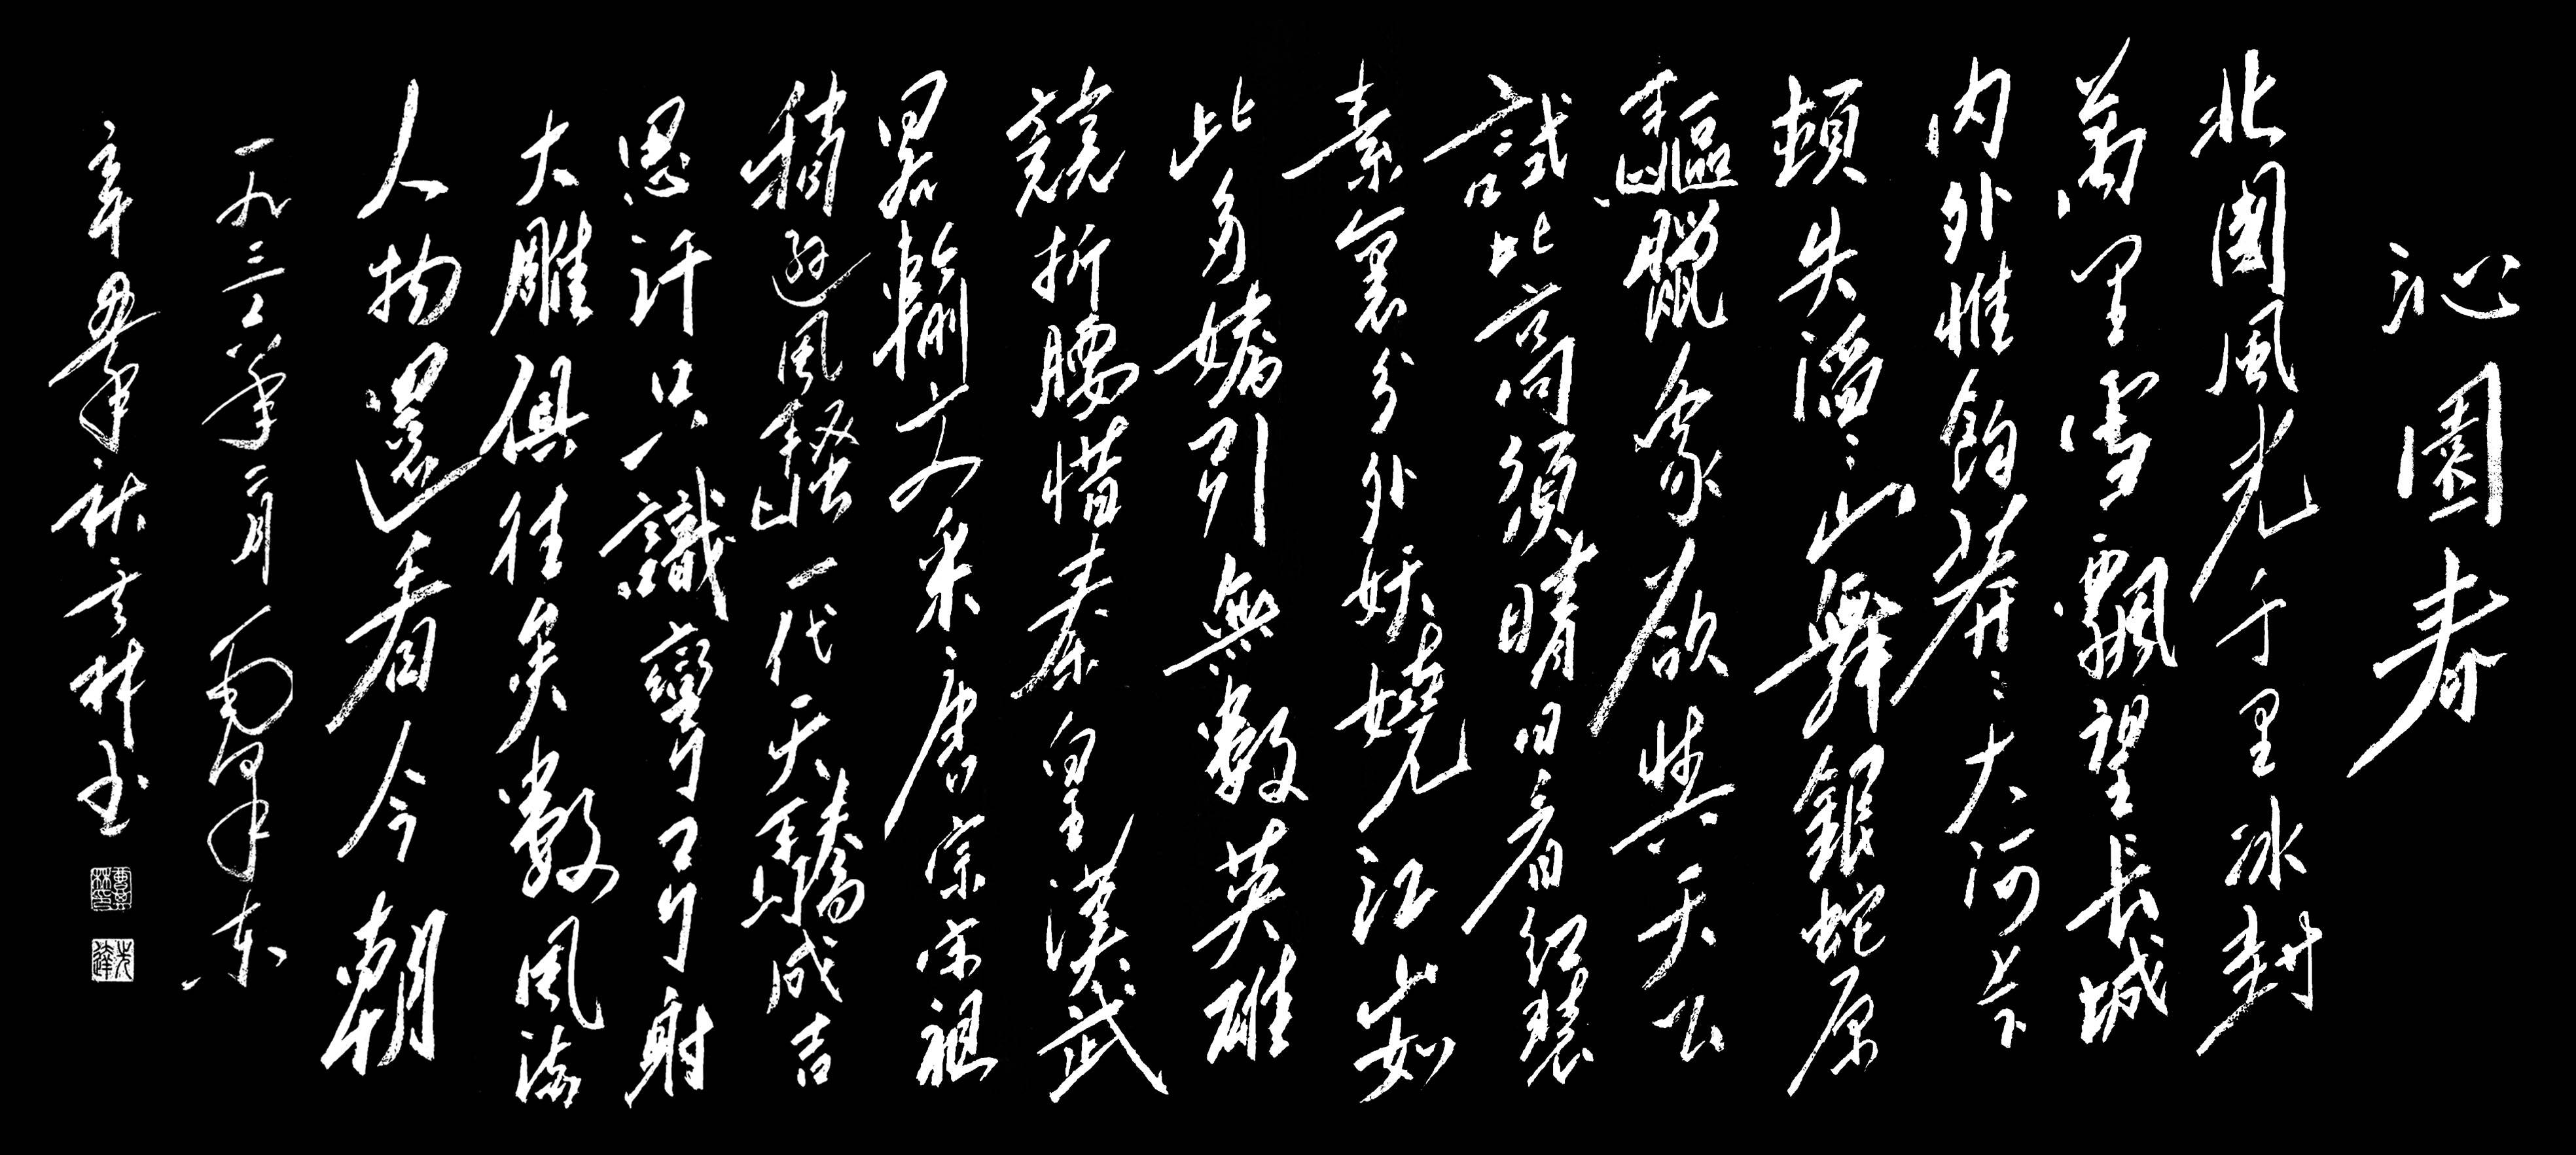 沁園春
北國風光千里冰封
萬里雪飄望長城
内外惟餘莽〻大河上下
頓失滔〻山舞銀蛇原
驅臘象欲與天公
試比高須晴日看紅裝
素裹分外妖嬈江山如
此多嬌引無數英雄
競折腰惜秦皇漢武
畧輸文采唐宗宋祖
稍遜風騷一代天驕成吉
思汗只識彎弓射
大雕俱往矣數風流
人物還看今朝
一九三六年二月 毛澤東
辛丑年秋林书